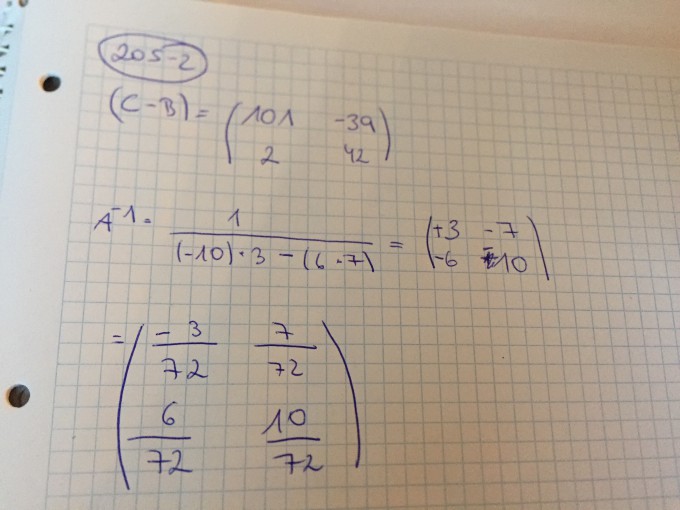 205-2
(C-B) = (101 -39
2 42)
A⁻¹ = 1 / (-10)·3 - (6·7) = (+3 -7
-6 -10)
= (-3/72 7/72
6/72 10/72)